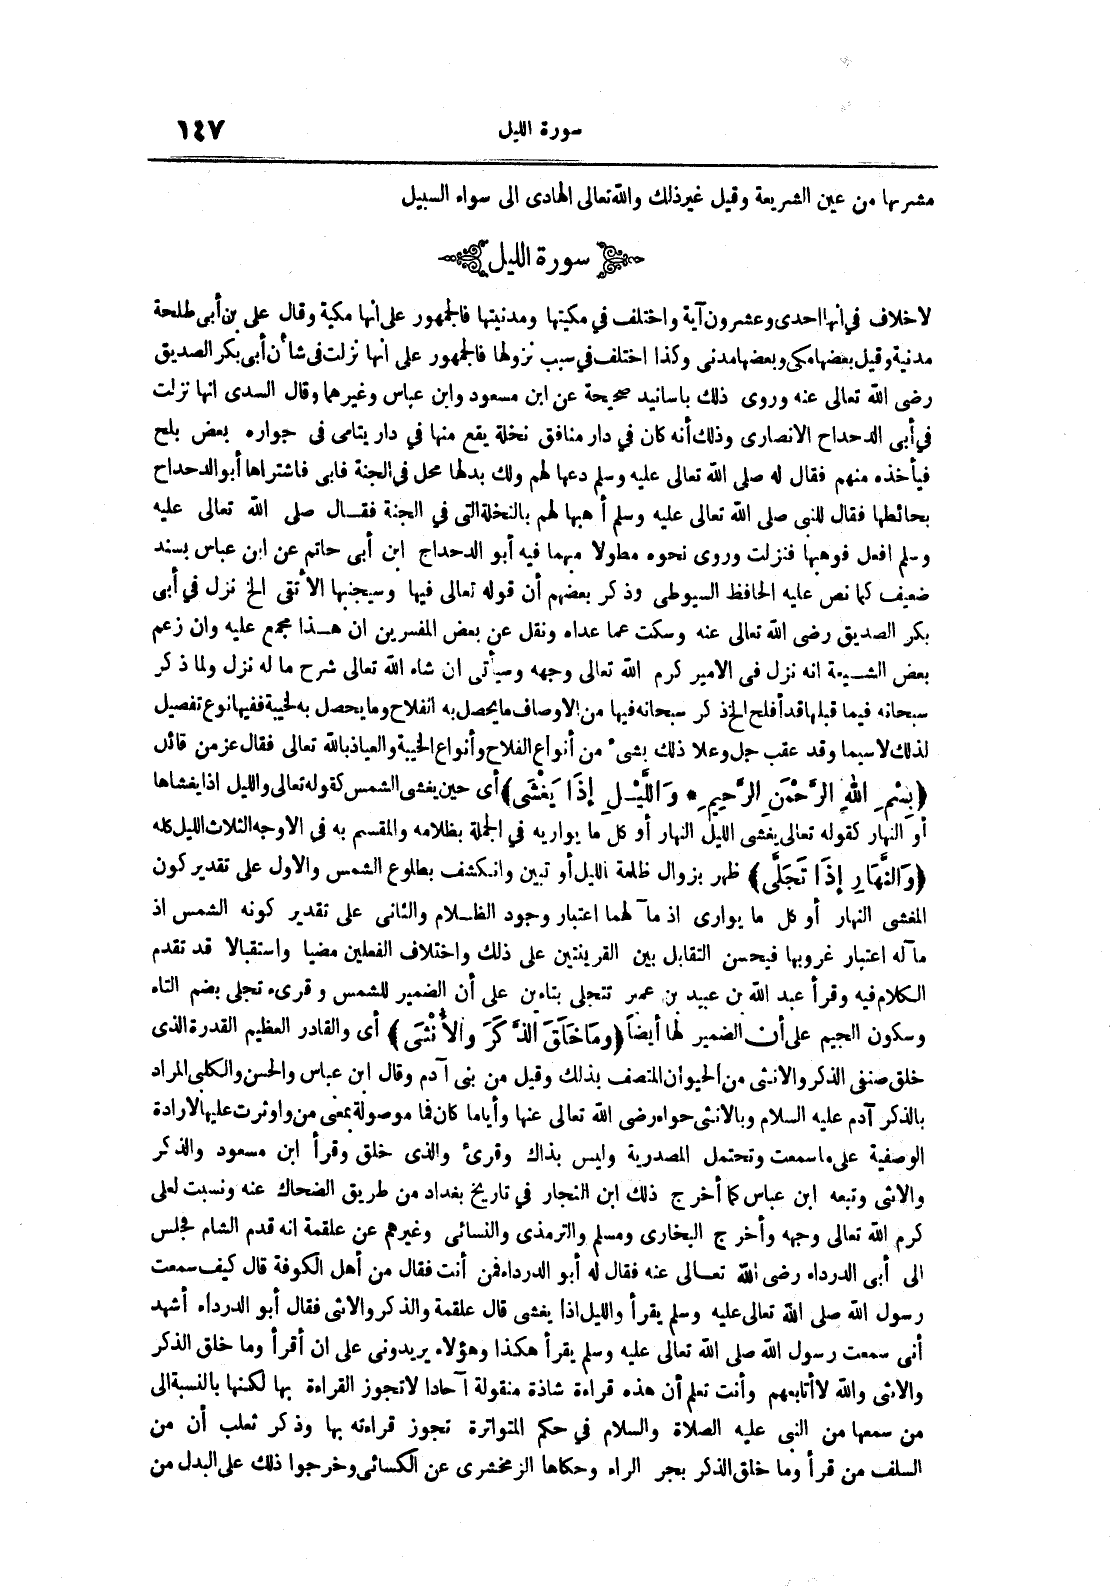 سورة الليل ١٤٧
مشربها من عين الشريعة وقيل غير ذلك والله تعالى الهادى الى سواء السبيل
سورة الليل
لا خلاف في انها احدى وعشرون آية واختلف في مكيتها ومدنيتها فالجمهور على انها مكية وقال على بن أبى طلحة
مدنية وقيل بعضها مكى وبعضها مدنى وكذا اختلف في سبب نزولها فالجمهور على انها نزلت فى شأن أبى بكر الصديق
رضى الله تعالى عنه وروى ذلك باسانيد صحيحة عن ابن مسعود وابن عباس وغيرهما وقال السدى انها نزلت
في أبى الدحداح الانصارى وذلك أنه كان في دار منافق نخلة يقع منها في دار يتامى فى جواره بعض بلح
فيأخذه منهم فقال له صلى الله تعالى عليه وسلم دعها لهم ولك بدلها محل في الجنة فابى فاشتراها أبو الدحداح
بحائطها فقال للنبى صلى الله تعالى عليه وسلم أهبها لهم بالنخلة التى في الجنة فقال صلى الله تعالى عليه
وسلم افعل فوهبها فنزلت وروى نحوه مطولا مبهما فيه أبو الدحداح ابن أبى حاتم عن ابن عباس بسند
ضعيف كما نص عليه الحافظ السيوطى وذكر بعضهم أن قوله تعالى فيها وسيجنبها الأتقى الخ نزل في أبى
بكر الصديق رضى الله تعالى عنه وسكت عما عداه ونقل عن بعض المفسرين ان هذا مجمع عليه وان زعم
بعض الشيعة انه نزل فى الامير كرم الله تعالى وجهه وسيأتى ان شاء الله تعالى شرح ما له نزل ولما ذكر
سبحانه فيما قبلها قد أفلح الخ ذكر سبحانه فيها من الاوصاف ما يحصل به انفلاح وما يحصل به الخيبة ففيها نوع تفصيل
لذلك لا سيما وقد عقب جل وعلا ذلك بشىء من أنواع الفلاح وأنواع الخيبة والعياذ بالله تعالى فقال عز من قائل
﴿بِسْمِ اللهِ الرَّحْمَنِ الرَّحِيمِ * وَاللَّيْلِ إِذَا يَغْشَى﴾ أى حين يغشى الشمس كقوله تعالى والليل اذا يغشاها
أو النهار كقوله تعالى يغشى الليل النهار أو كل ما يواريه في الجملة بظلامه والمقسم به فى الاوجه الثلاث الليل كله
﴿وَالنَّهَارِ إِذَا تَجَلَّى﴾ ظهر بزوال ظلمة الليل أو تبين وانكشف بطلوع الشمس والاول على تقدير كون
المغشى النهار أو كل ما يوارى اذ مآلهما اعتبار وجود الظلام والثانى على تقدير كونه الشمس اذ
مآله اعتبار غروبها فيحسن التقابل بين القرينتين على ذلك واختلاف الفعلين مضيا واستقبالا قد تقدم
الكلام فيه وقرأ عبد الله بن عبيد بن عمير تتجلى بتاءين على أن الضمير للشمس وقرىء تجلى بضم التاء
وسكون الجيم على أن الضمير لها أيضاً ﴿وَمَا خَلَقَ الذَّكَرَ وَالأُنْثَى﴾ أى والقادر العظيم القدرة الذى
خلق صنفى الذكر والانثى من الحيوان المتصف بذلك وقيل من بنى آدم وقال ابن عباس والحسن والكلبى المراد
بالذكر آدم عليه السلام وبالانثى حواء رضى الله تعالى عنها وأياما كان فما موصولة بمعنى من واوثرت عليها لارادة
الوصفية على ما سمعت وتحتمل المصدرية وليس بذاك وقرئ والذى خلق وقرأ ابن مسعود والذكر
والانثى وتبعه ابن عباس كما أخرج ذلك ابن النجار في تاريخ بغداد من طريق الضحاك عنه ونسبت لعلى
كرم الله تعالى وجهه وأخرج البخارى ومسلم والترمذى والنسائى وغيرهم عن علقمة انه قدم الشام فجلس
الى أبى الدرداء رضى الله تعالى عنه فقال له أبو الدرداء ممن أنت فقال من أهل الكوفة قال كيف سمعت
رسول الله صلى الله تعالى عليه وسلم يقرأ والليل اذا يغشى قال علقمة والذكر والانثى فقال أبو الدرداء أشهد
أنى سمعت رسول الله صلى الله تعالى عليه وسلم يقرأ هكذا وهؤلاء يريدونى على ان أقرأ وما خلق الذكر
والانثى والله لا أتابعهم وأنت تعلم أن هذه قراءة شاذة منقولة آحادا لا تجوز القراءة بها لكنها بالنسبة الى
من سمعها من النبى عليه الصلاة والسلام في حكم المتواترة تجوز قراءته بها وذكر ثعلب أن من
السلف من قرأ وما خلق الذكر بجر الراء وحكاها الزمخشرى عن الكسائى وخرجوا ذلك على البدل من